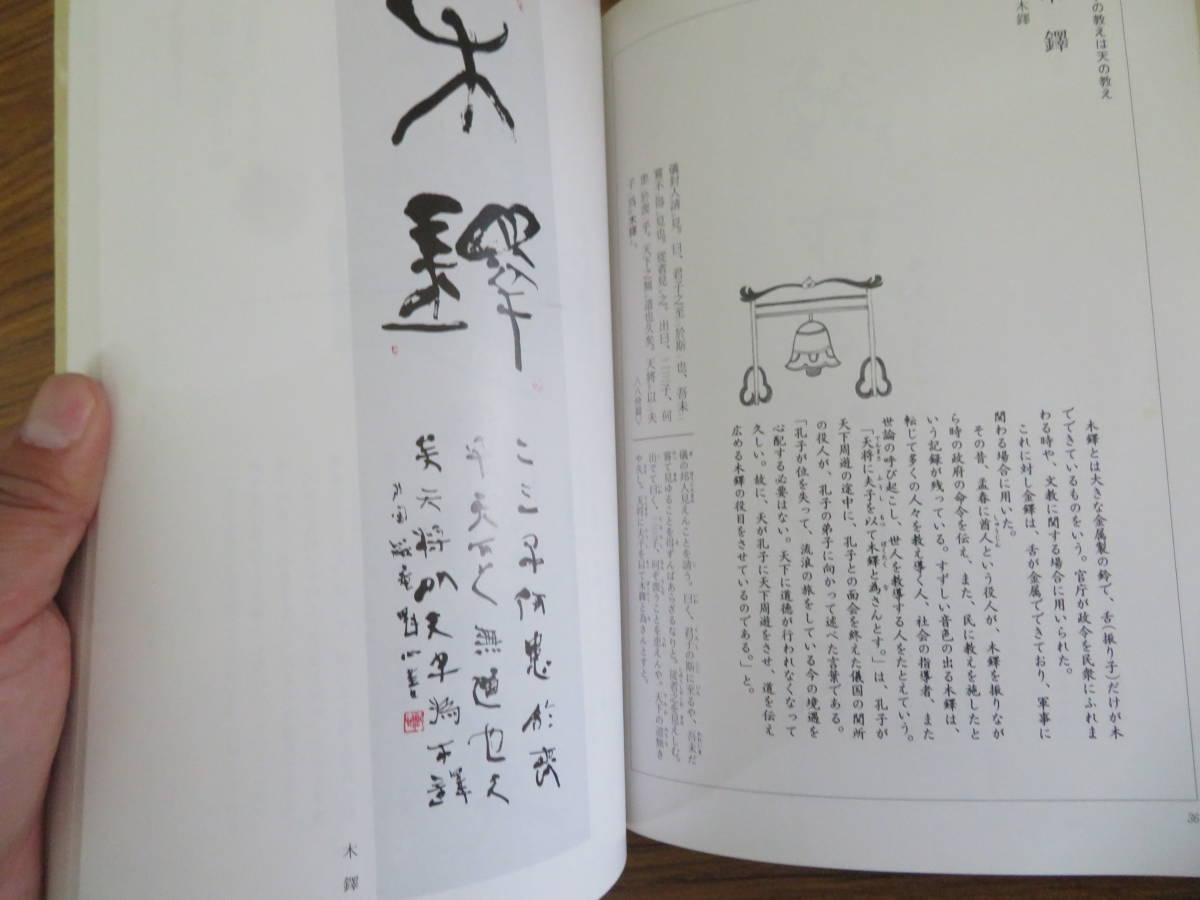 の教えは天の教え
鐸
木鐸
木鐸とは大きな金属製の鈴で、舌(振り子)だけが木
でできているものをいう。官庁が政令を民衆にふれま
わる時や、文教に関する場合に用いられた。
これに対し金鐸は、舌が金属でできており、軍事に
関わる場合に用いた。
その昔、孟春に酋人という役人が、木鐸を振りなが
ら時の政府の命令を伝え、また、民に教えを施したと
いう記録が残っている。すずしい音色の出る木鐸は、
転じて多くの人々を教え導く人、社会の指導者、また
世論の呼び起こし、世人を教導する人をたとえていう。
「天将に夫子を以て木鐸と為さんとす。」は、孔子が
天下周遊の途中に、孔子との面会を終えた儀国の関所
の役人が、孔子の弟子に向かって述べた言葉である。
「孔子が位を失って、流浪の旅をしている今の境遇を
心配する必要はない。天下に道徳が行われなくなって
久しい。故に、天が孔子に天下周遊をさせ、道を伝え
広める木鐸の役目をさせているのである。」と。
儀封人請見。曰、君子之至於斯也、吾未
嘗不得見也。從者見之。出曰、二三子、何
患於喪乎。天下之無道也久矣。天將以夫
子爲木鐸。
〈八佾篇〉
儀の封人見えんことを請う。曰く、君子の斯に至るや、吾未だ
嘗て見ゆることを得ずんばあらざるなりと。従者之を見えしむ。
出でて曰く、二三子、何ぞ喪うことを患えんや。天下の道無き
や久し。天将に夫子を以て木鐸と為さんとすと。
36
木鐸
二三子何患於喪
乎天下之無道也久
矣天将以夫子為木鐸
木鐸